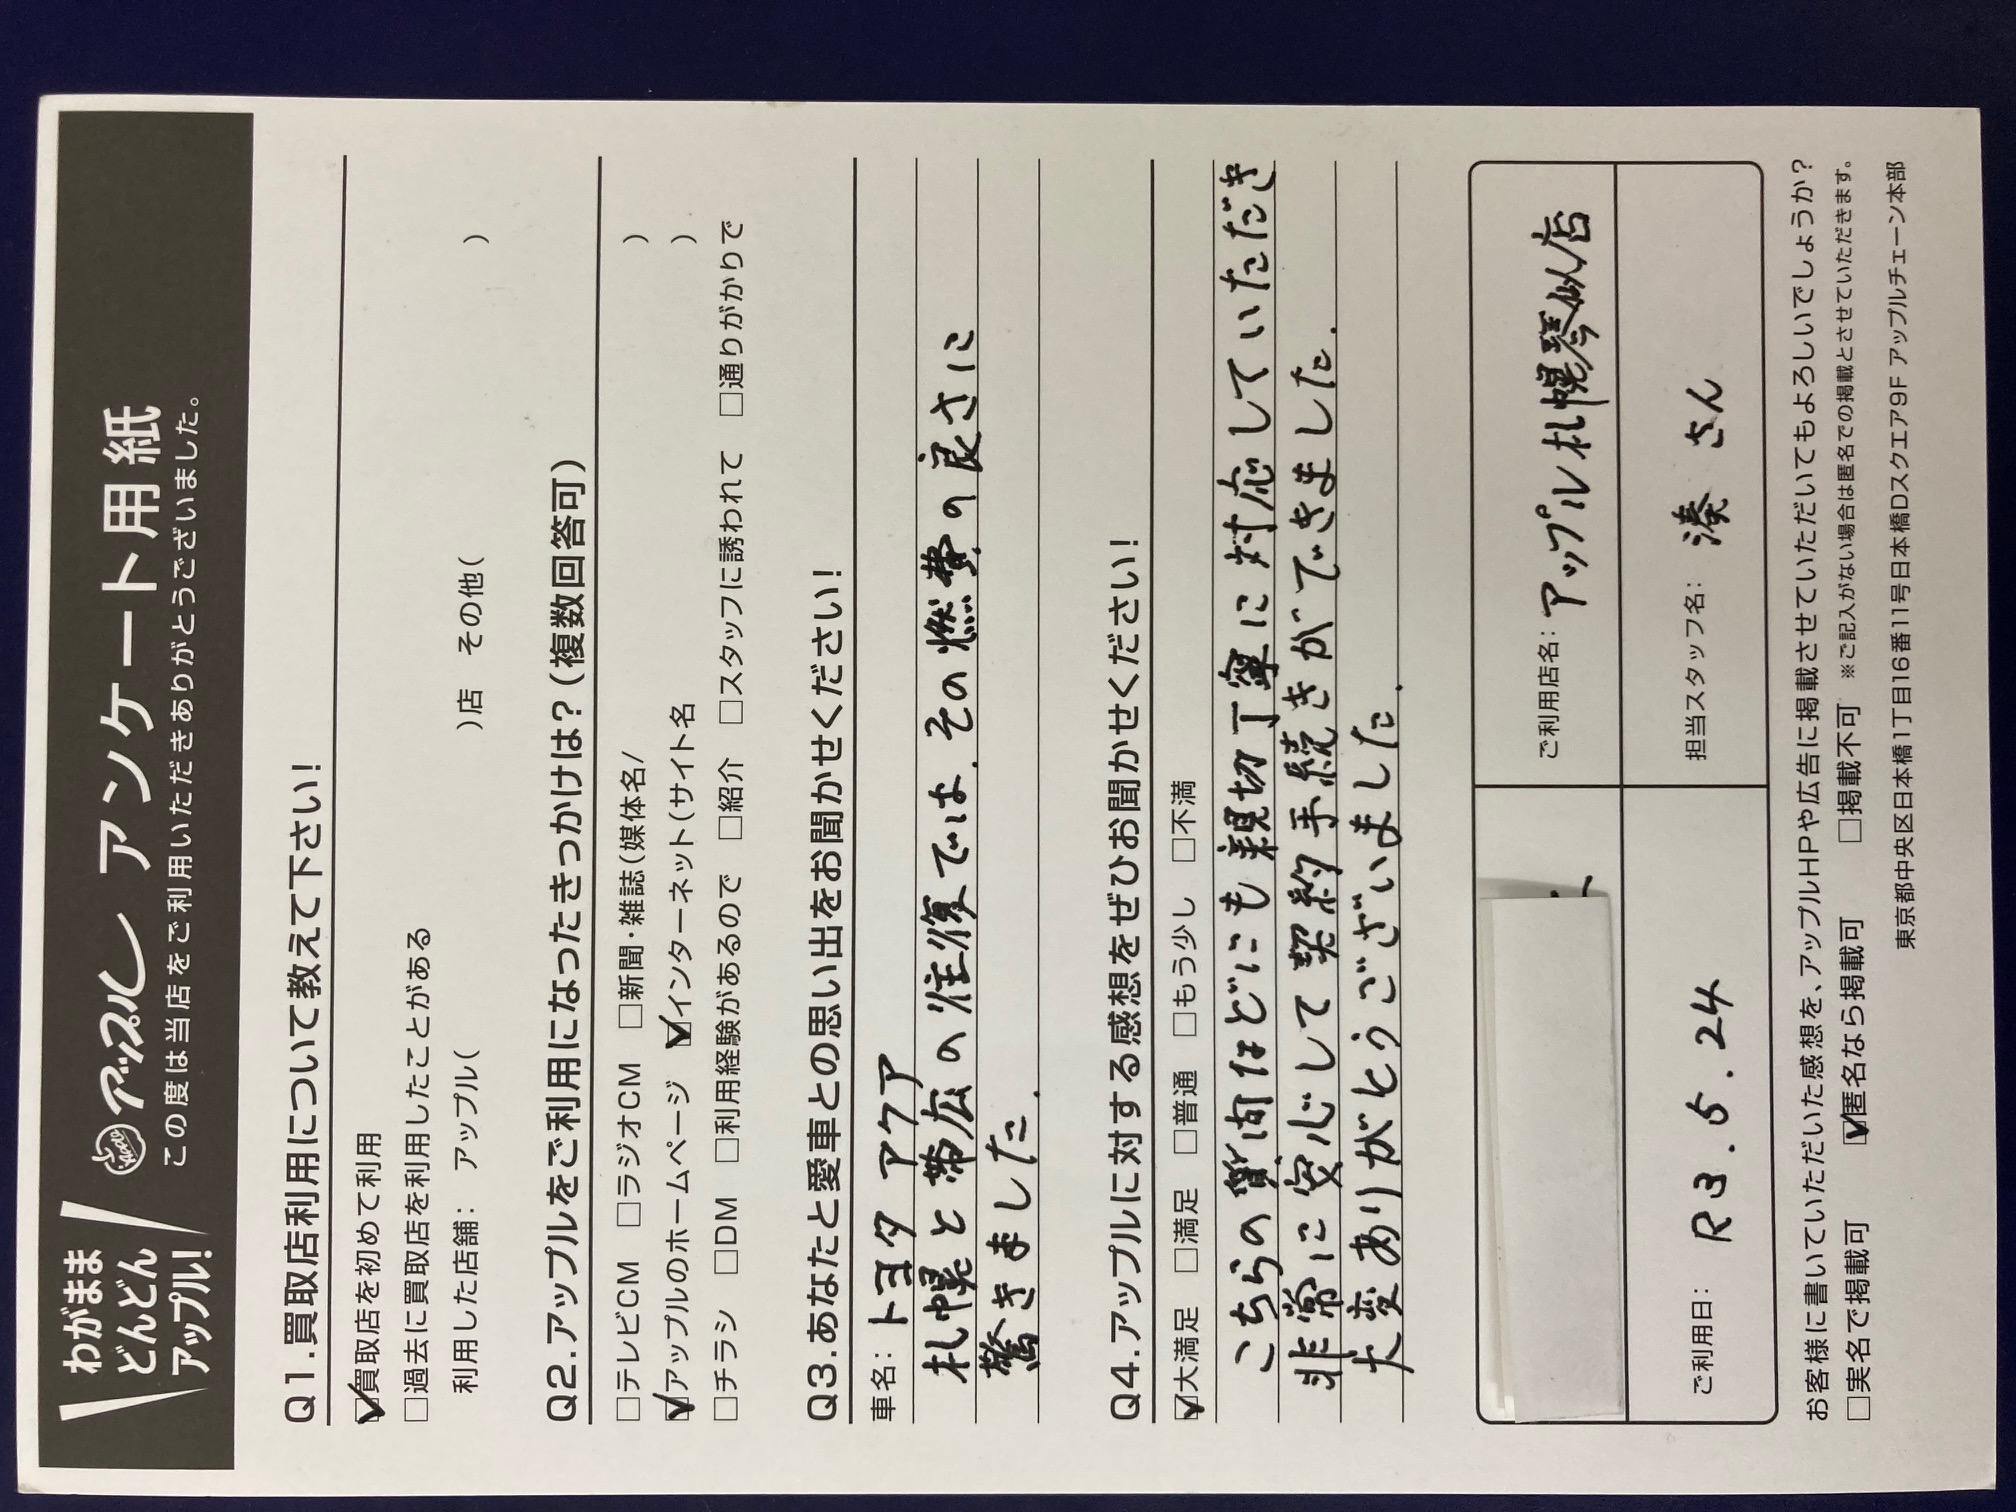 わがまま
どんどん
アップル!
Apple アップル アンケート用紙
この度は当店をご利用いただきありがとうございました。
Q1.買取店利用について教えて下さい!
☑買取店を初めて利用
□過去に買取店を利用したことがある
利用した店舗: アップル( )店 その他( )
Q2.アップルをご利用になったきっかけは?(複数回答可)
□テレビCM □ラジオCM □新聞・雑誌(媒体名/ )
☑アップルのホームページ ☑インターネット(サイト名 )
□チラシ □DM □利用経験があるので □紹介 □スタッフに誘われて □通りがかりで
Q3.あなたと愛車との思い出をお聞かせください!
車名: トヨタ アクア
札幌と帯広の往復では、その燃費の良さに
驚きました.
Q4.アップルに対する感想をぜひお聞かせください!
☑大満足 □満足 □普通 □もう少し □不満
こちらの質問などにも親切丁寧に対応していただき
非常に安心して契約手続きができました.
大変ありがとうございました.
ご利用店名: アップル札幌琴似店
ご利用日: R3.5.24
担当スタッフ名: 湊 さん
お客様に書いていただいた感想を、アップルHPや広告に掲載させていただいてもよろしいでしょうか?
□実名で掲載可 ☑匿名なら掲載可 □掲載不可 ※ご記入がない場合は匿名での掲載とさせていただきます。
東京都中央区日本橋1丁目16番11号日本橋Dスクエア9F アップルチェーン本部